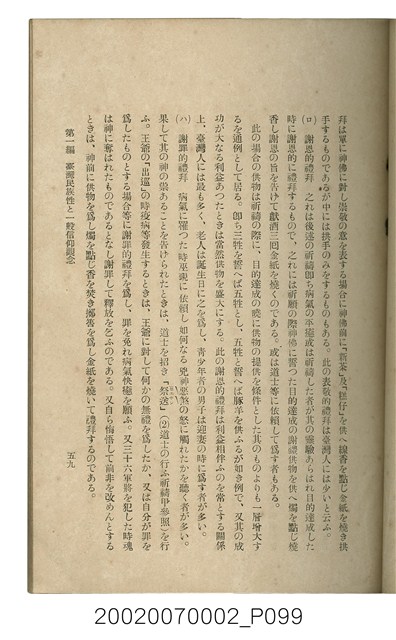 拜は單に神佛に對し崇敬の意を表する場合に神佛前に「新茶」及「糕仔」を供へ線香を點じ金紙を燒き拱
手するものであるが中には拱手のみをするものもある。此の表敬的禮拜は臺灣人には少いと云ふ。
(ロ) 謝恩的禮拜 之れは後述の祈禱卽ち病氣の平癒或は祈禱した者が其の靈驗あらはれ目的達成した
時に謝恩的に禮拜するもので、之れには祈願の際神佛に誓つた目的達成の謝禮供物を供へ燭を點じ燒
香し謝恩の旨を告げて獻酒三回金紙を燒くのである。或は道士等に依賴して爲す者もある。
此の場合の供物は祈禱の際に、目的達成の曉に供物の提供を條件とした其のものよりも一層增大す
るを通例として居る。卽ち三牲を誓へば五牲とし、五牲と誓へば豚羊を供ふるが如き例で、又其の成
功が大なる利益あつたときは當然供物を盛大にする。此の謝恩的禮拜は利益相伴ふのを常とする關係
上、臺灣人には最も多く、老人は誕生日に之を爲し、靑少年者の男子は迎妻の時に爲す者が多い。
(ハ) 謝罪的禮拜 病氣に罹つた時巫覡に依賴し如何なる兇神惡煞の怒に觸れたかを聽く者が多い。
果して其の神の祟あることを告げられたときは、道士を招き「祭送」(2)道士の行ふ祈禱甲參照)を行
ふ。王爺の「出巡」の時疫病等發生するときは、王爺に對して何かの無禮を爲したか、又は自分が罪を
爲したものとする場合等に謝罪的禮拜を爲し、罪を免れ病氣快癒を願ふ。又三十六軍將を犯した時魂
は神に奪はれたものであるとなし謝罪して釋放を乞ふのである。又自ら悔悟して前非を改めんとする
ときは、神前に供物を爲し燭を點じ香を焚き擲筶を爲し金紙を燒いて禮拜するのである。
第一編 臺灣民族性と一般信仰觀念
五九
20020070002_P099